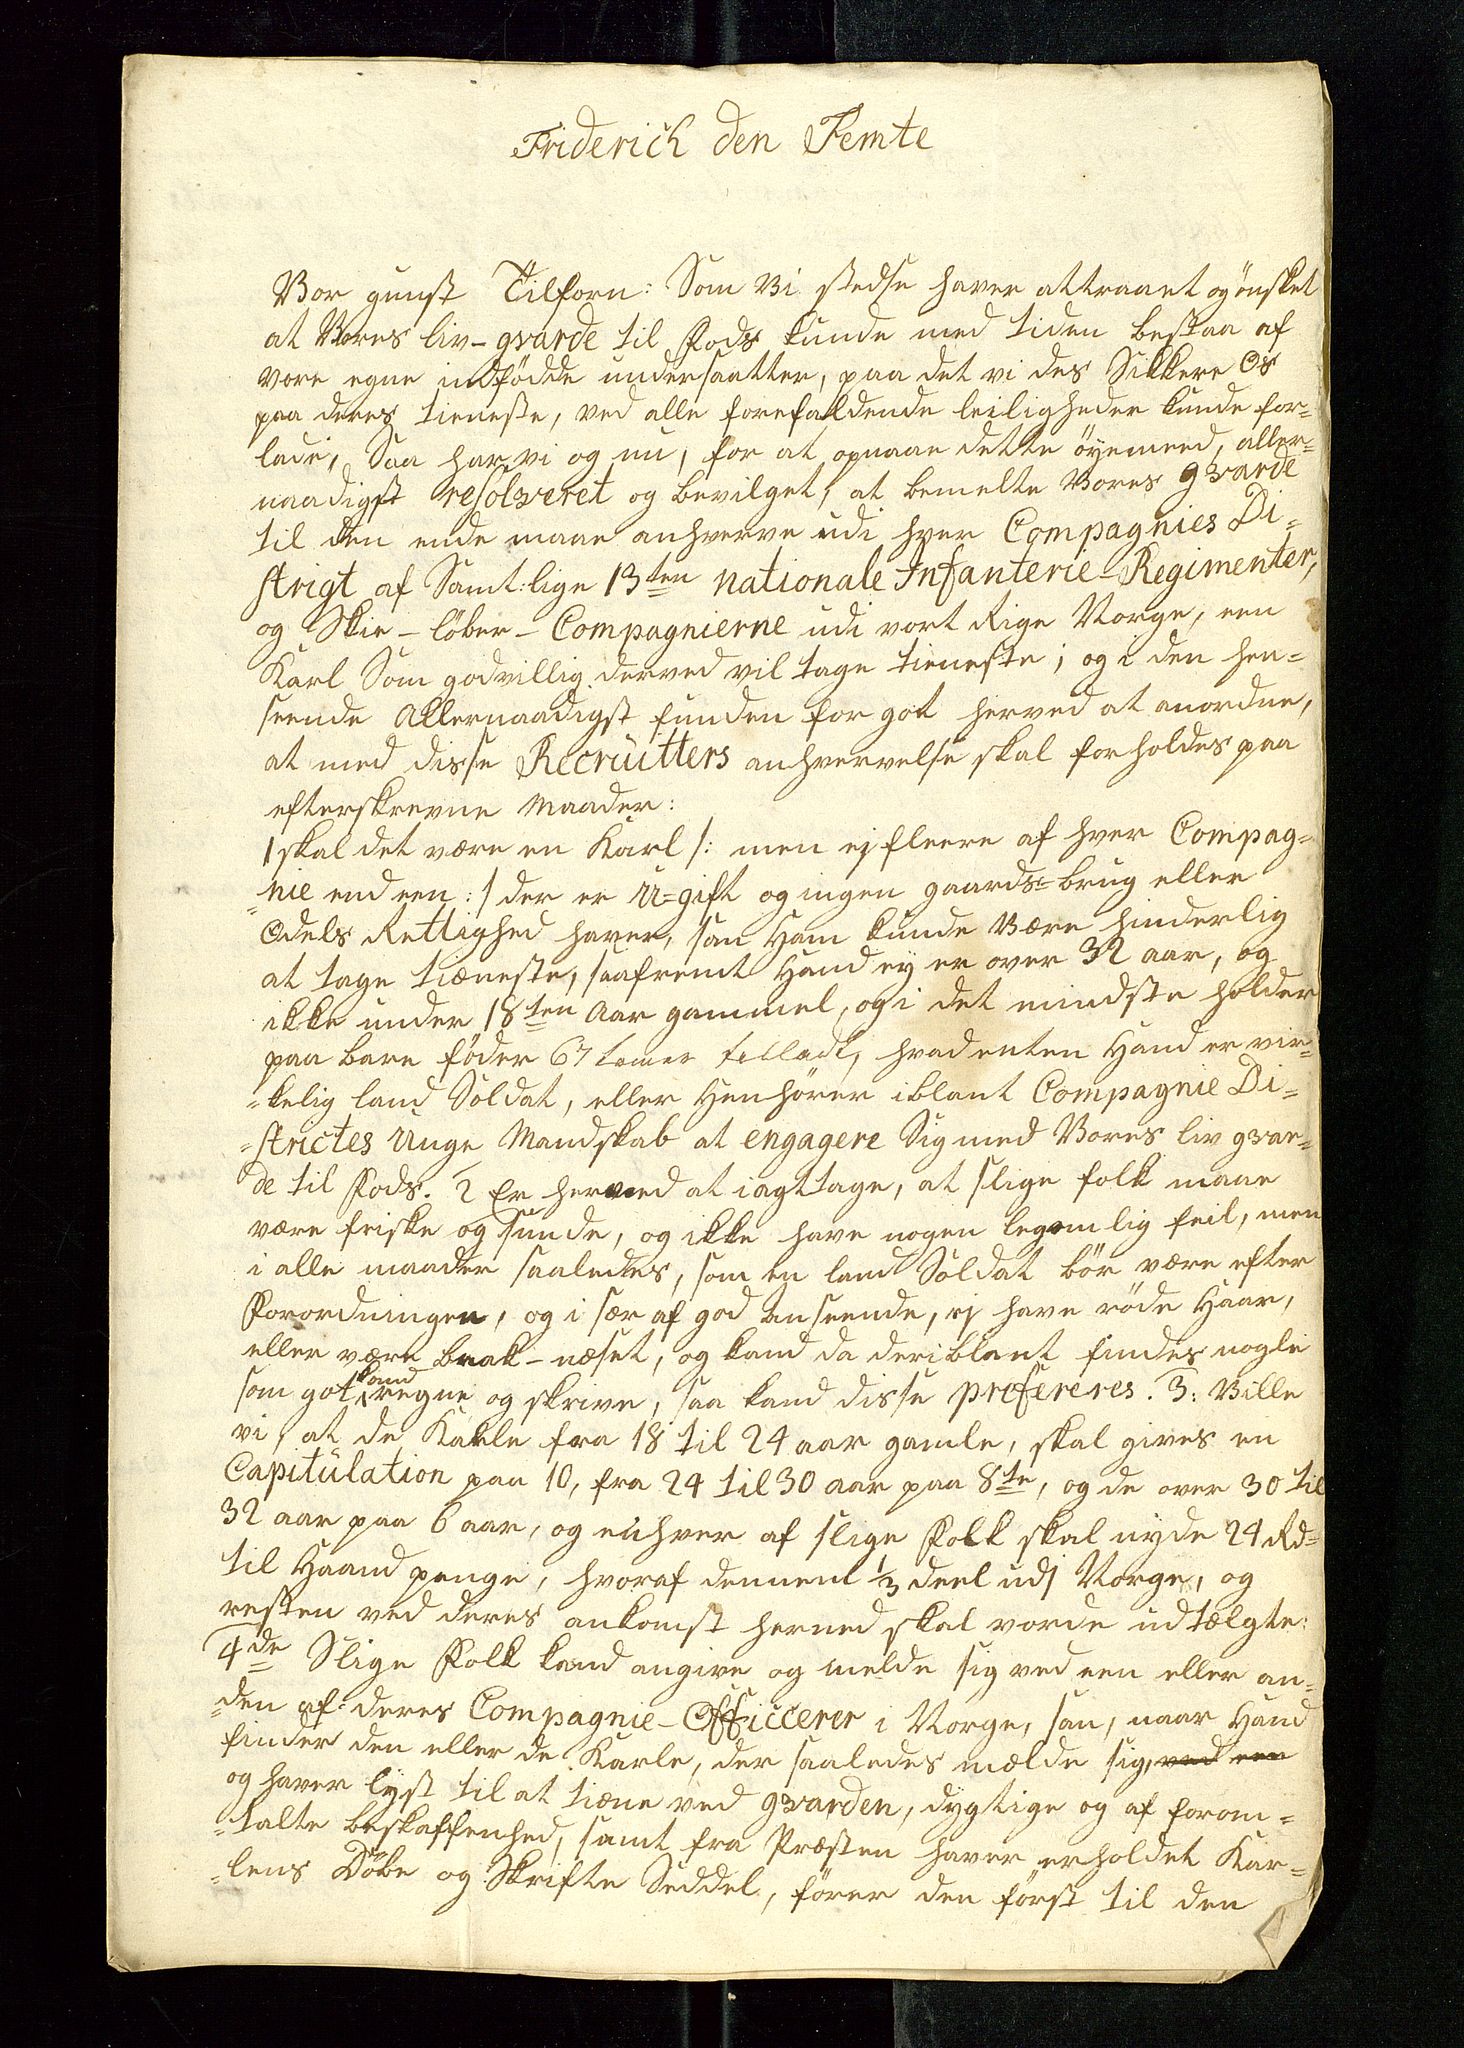 Friderich den Femte
Vor gunst Tilforn: Som Vi stedse haver attraaet og ønsket
at Vores liv-gvarde til Fods kunde med tiden bestaa af
vore egne indfødde undersaatter, paa det vi des Sikkere Os
paa deres tieneste, ved alle forefaldende leiligheder kunde for=
lade, Saa har vi og nu, for at opnaae dette øyemeed, aller=
naadigst resolveret og bevilget, at bemelte Vores gvarde
til den ende maae anhverve udi hver Compagnies Di=
strigt af Samt:lige 13ten nationale Infanterie-Regimenter,
og Skie-løber-Compagnierne udi vort Rige Norge, een
Karl Som godvillig derved vil tage tieneste; og i den hen=
seende Allernaadigst funden for got herved at anordne,
at med disse Recruitters anhvervelse skal forholdes paa
efterskrevne Maader:
1 skal det være en Karl /: men ej fleere af hver Compag=
=nie end een :/ der er U=gift og ingen gaards=brug eller
Odels Rettighed haver, saa Ham kunde Være hinderlig
at tage tieneste, saafremt Hand ey er over 32 aar, og
ikke under 18ten Aar gammel, og i det mindste holder
paa bare føder 67 tomer Siellads, hvad enten Hand er vir=
=kelig land Soldat, eller Henhører iblant Compagnie Di=
=strictes Unge Mandskab at engagere Sig med Vores liv gvar=
de til Fods. 2 Er herved at iagttage, at slige folk maae
være friske og sunde, og ikke have nogen legemlig feil, men
i alle maader saaledes, som en land Soldat bør være efter
Forordningen, og i sær af god anseende, ej have røde Haar,
eller være brak-næset, og kand da deriblant findes nogle
som got kand regne og skrive, saa kand disse prefereres. 3: Ville
vi, at de Karle fra 18 til 24 aar gamle, skal gives en
Capitulation paa 10, fra 24 til 30 aar paa 8te, og de over 30 til
32 aar paa 6 aar, og enhver af slige Folk skal nyde 24 Rd=
til Haand penge, hvoraf dennem 1/3 deel udj Norge, og
resten ved deres ankomst herned skal vorde udtælgte:
4de Slige Folk kand angive og melde sig ved een eller an=
=den af deres Compagnie-Officcerer i Norge, saa, naar Hand
finder den eller de Karle, der saaledes mælde sig, ved een
og haver lyst til at tiene ved gvarden, dygtige og af forom=
=talte beskaffenhed, samt fra Præsten haver erholdet Kar=
=lens Døbe og Skrifte Seddel, fører den først til den